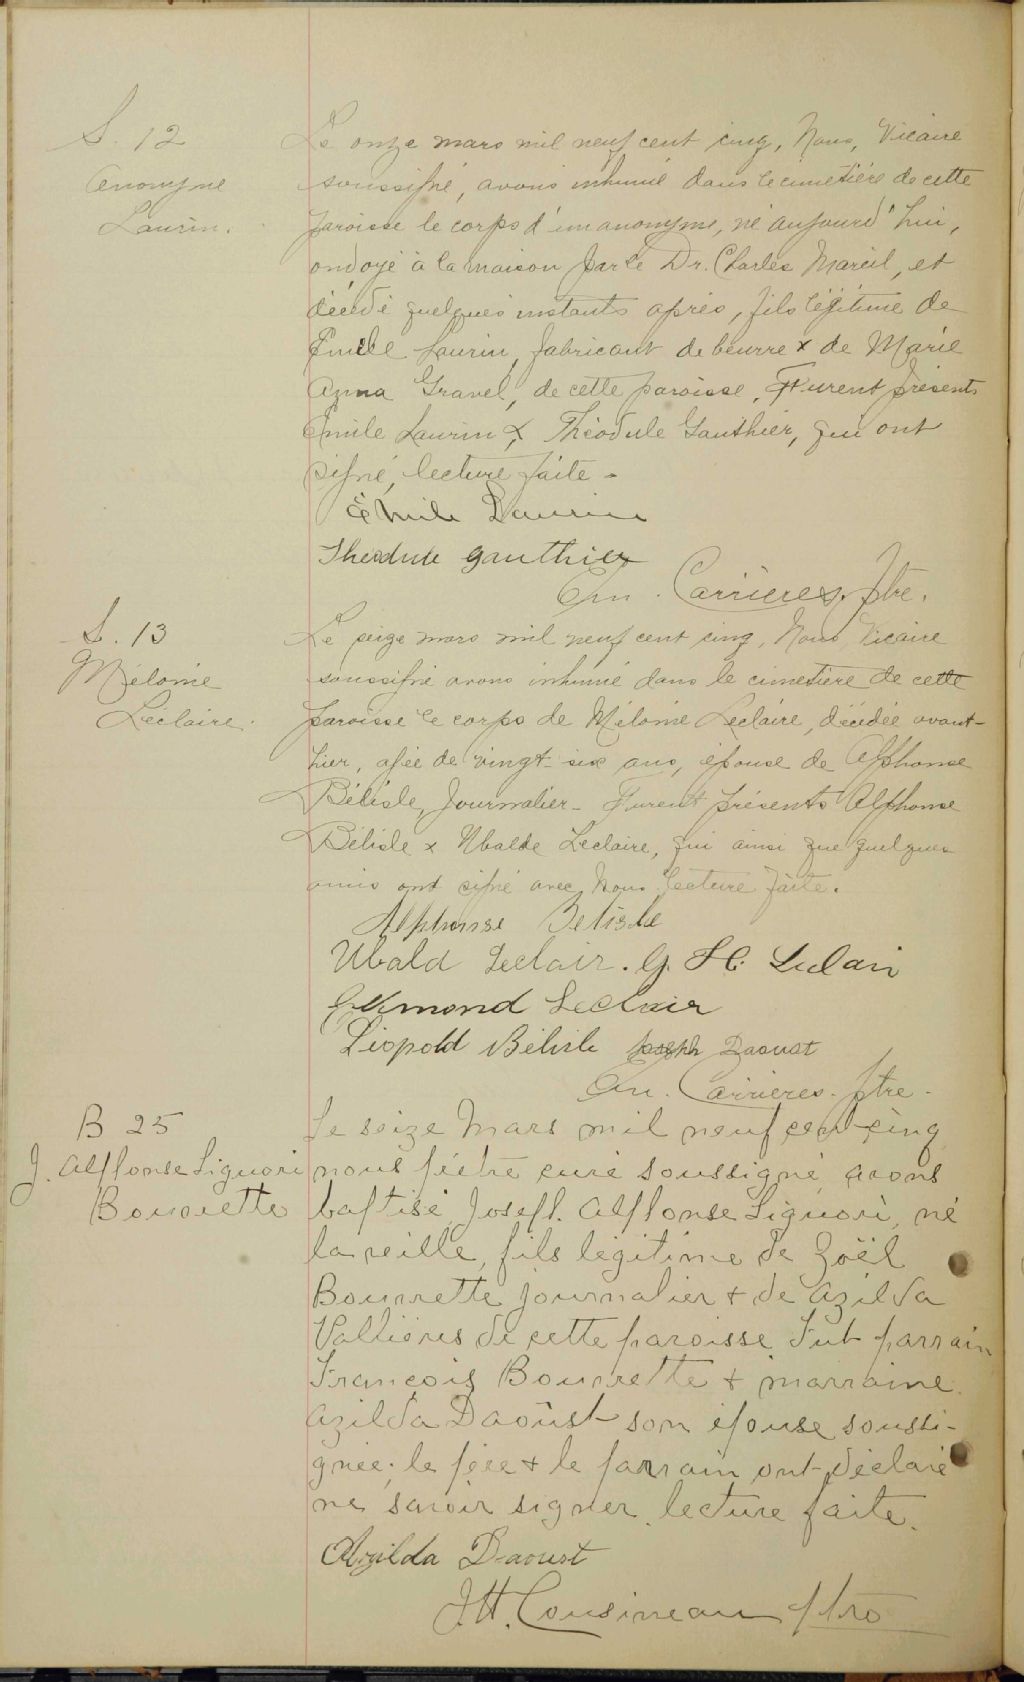 S. 12
Anonyme
Laurin.
Le onze mars mil neuf cent cinq, Nous, Vicaire
soussigné, avons inhumé dans le cimetière de cette
paroisse le corps d'un anonyme, né aujourd'hui,
ondoyé à la maison par le Dr. Charles Mareil, et
décédé quelques instants après, fils légitime de
Émile Laurin, fabricant de beurre x de Marie
Azma Gravel, de cette paroisse. Furent présents
Émile Laurin & Théodule Gauthier, qui ont
signé, lecture faite -
Émile Laurin
Theodule gauthier
Em. Carrières, ptre.
S. 13
Mélonie
Leclaire.
Le seize mars mil neuf cent cinq, Nous Vicaire
soussigné avons inhumé dans le cimetière de cette
paroisse le corps de Mélonie Leclaire, décédée avant-
hier, agée de vingt-six ans, épouse de Alphonse
Bélisle, Journalier - Furent présents Alphonse
Bélisle x Ubalde Leclaire, qui ainsi que quelques
amis ont signé avec Nous lecture faite.
Alphonse Belisle
Ubald Leclair. G. H. Leclair
Edmond Leclair
Léopold Bélisle Joseph Daoust
Em. Carrières. ptre -
B 25
J. Alphonse Liguori
Bourrette
Le seize Mars mil neuf cent cinq
nous prêtre curé soussigné avons
baptisé, Joseph. Alphonse Liguori, né
la veille, fils légitime de Zoël
Bourrette journalier + de Azilda
Vallières de cette paroisse Fut parrain
François Bourrette + marraine
Azilda Daoûst son épouse soussi-
gnée; le père + le parrain ont déclaré
ne savoir signer. lecture faite.
Azilda Daoust
J.H. Cousineau ptre